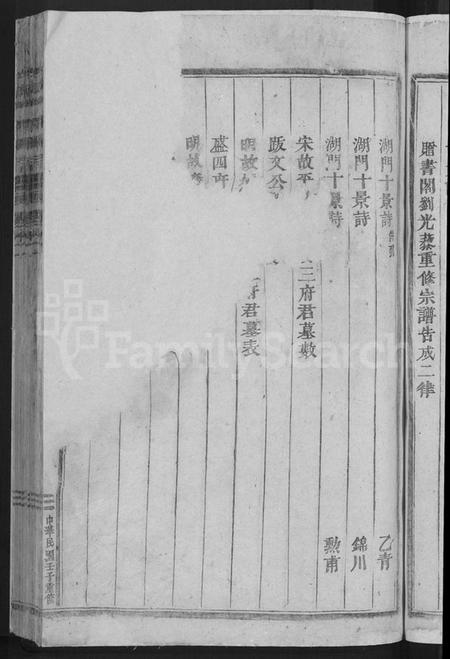 贈書閣劉光蔾重修宗譜告成二律
湖門十景詩 乙青
湖門十景詩 錦川
湖門十景詩 勲甫
宋故平 三府君墓敷
跋文公
明故 府君墓表
盛四
明故
中華民國壬子重修
FamilySearch